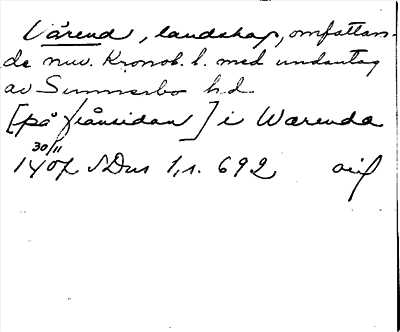 Värend, landskap, omfattan-
de nuv. Kronob. l. med undantag
av Sunnerbo hd.
[på frånsidan] i Warenda
30/11
1407 SDns 1, s. 692